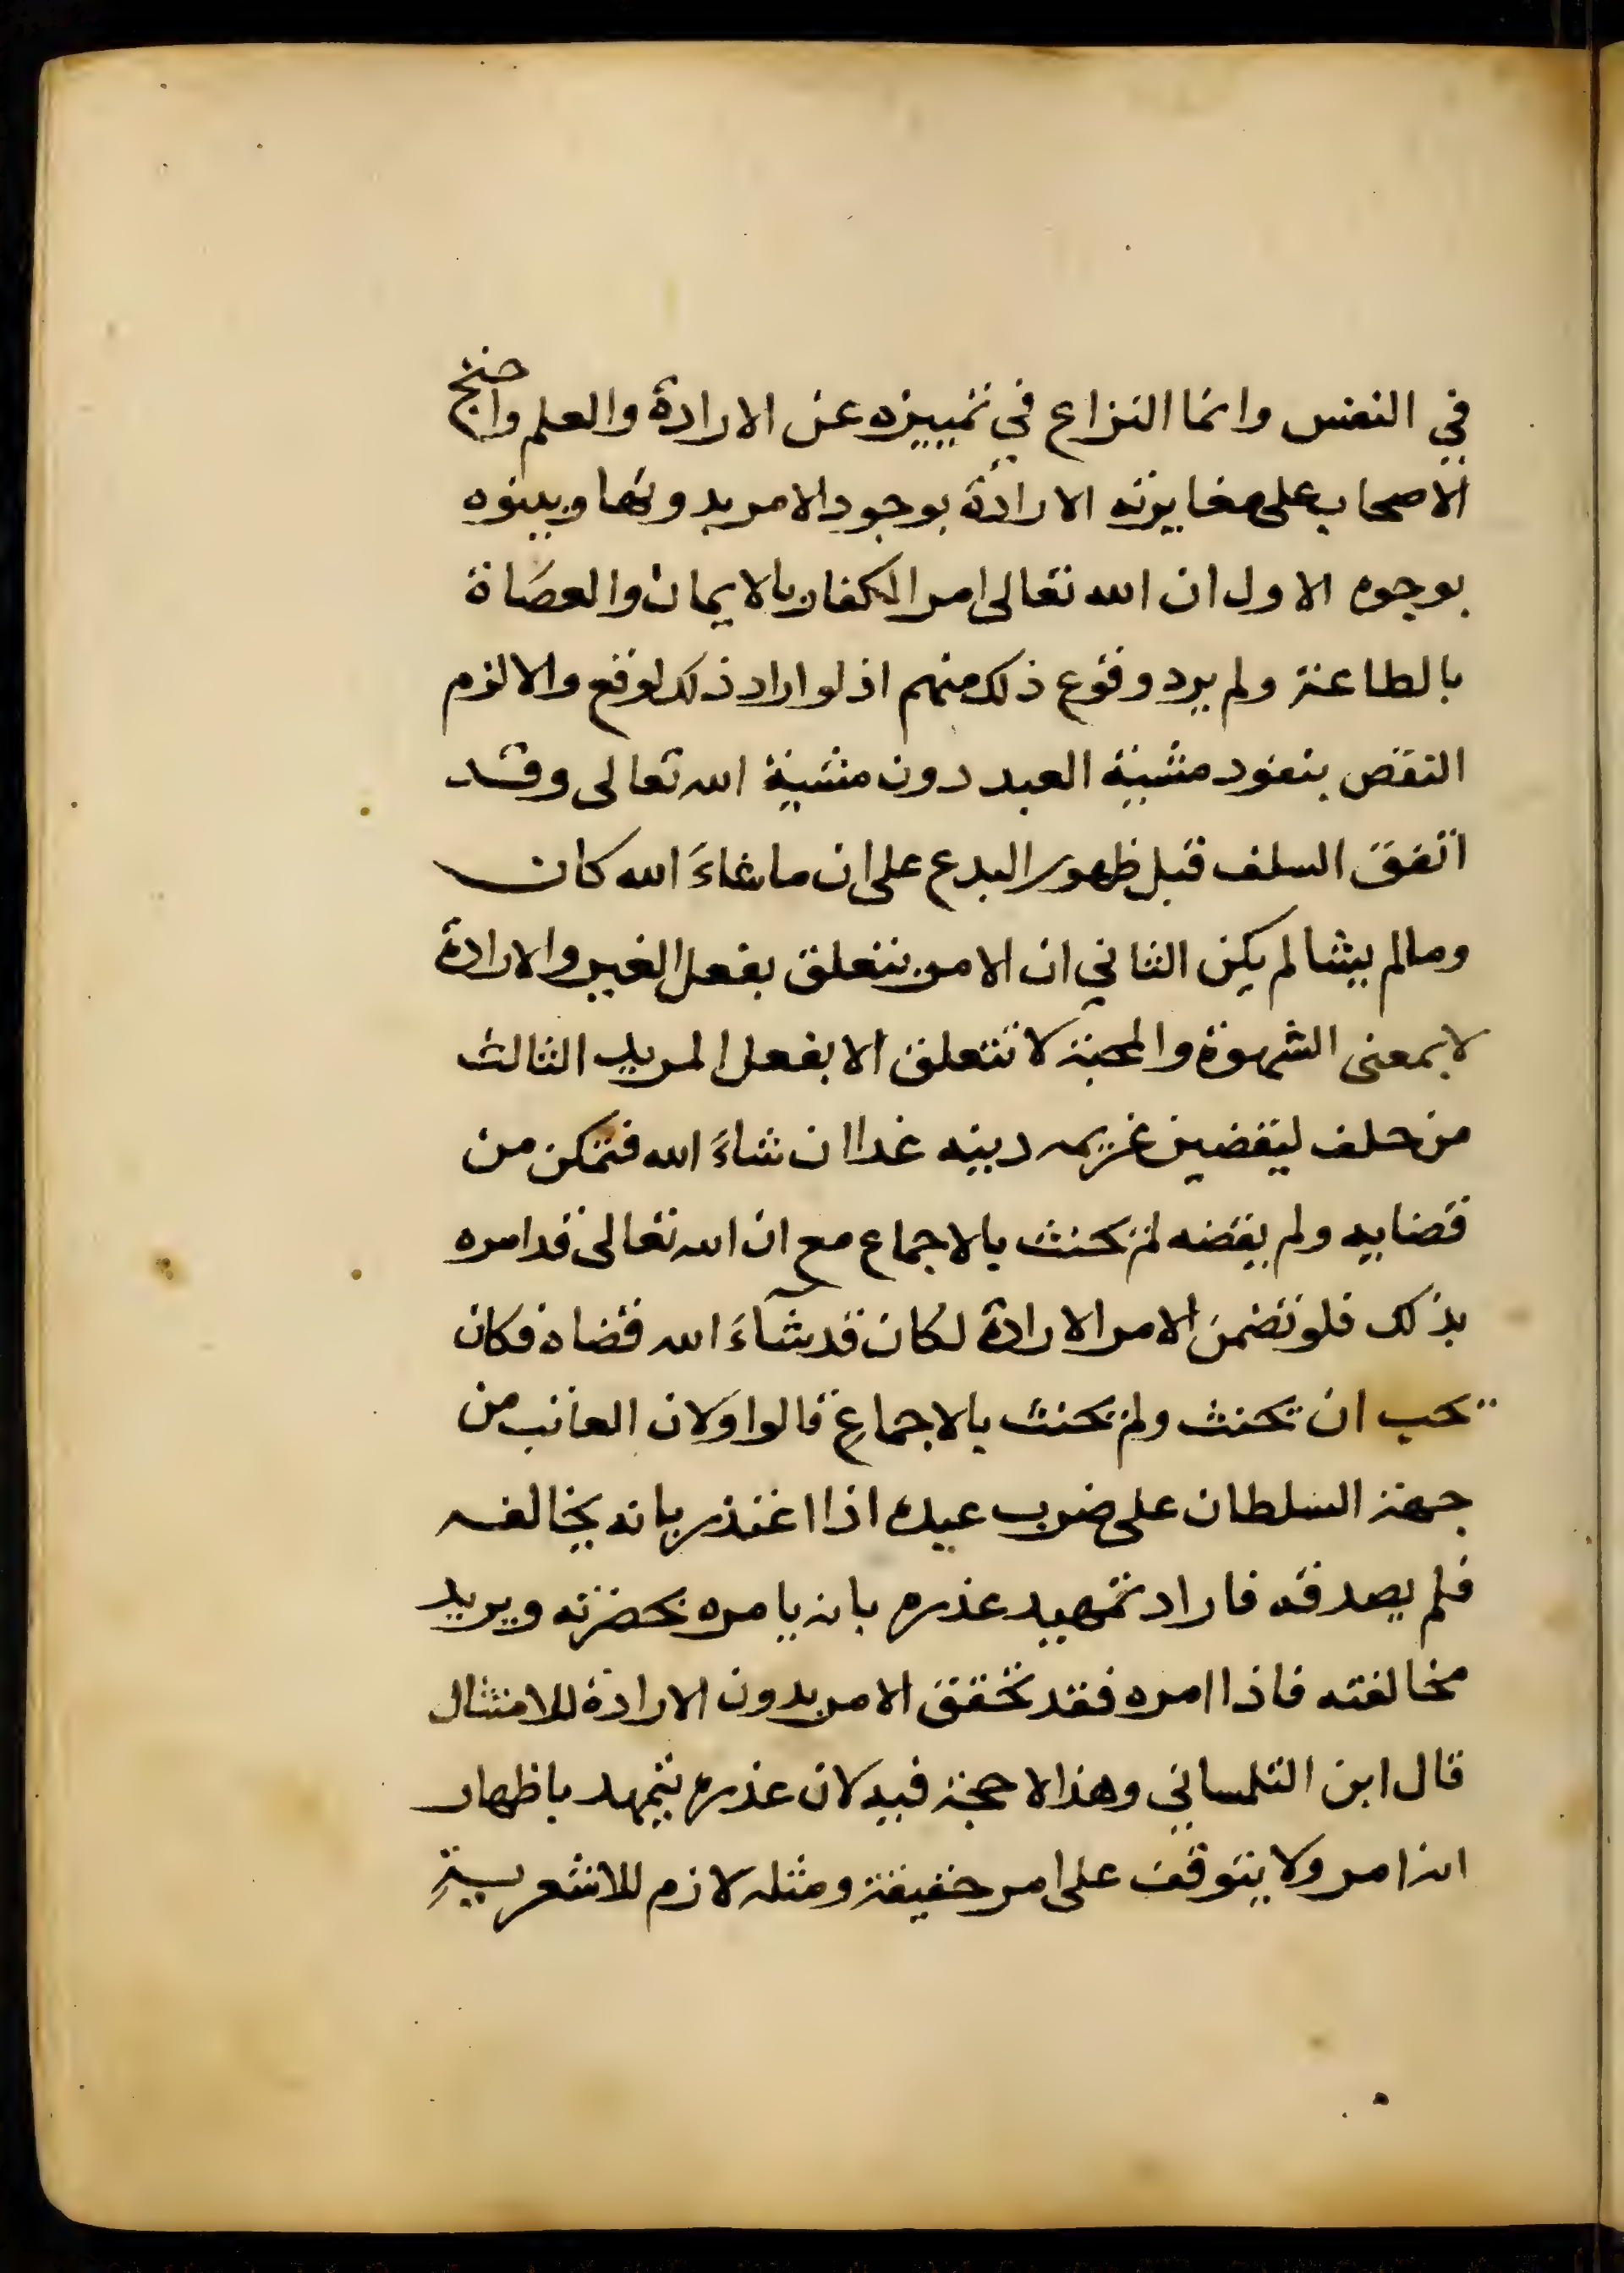 في النفس وانما النزاع في تمييزه عن الارادة والعلم واحتج
الاصحاب على مغايرته الارادة بوجود الامر بدونها وبينوه
بوجوه الاول ان الله تعالى امر الكفار بالايمان والعصاة
بالطاعة ولم يرد وقوع ذلك منهم اذ لو اراد ذلك لوقع والا لزم
النقص بنفود مشية العبد دون مشية الله تعالى وقد
اتفق السلف قبل ظهور البدع على ان ما شاءَ الله كان
وما لم يشا لم يكن الثاني ان الامر يتعلق بفعل الغير والارادة
لا بمعنى الشهوة والمحبة لا تتعلق الا بفعل المريد الثالث
من حلف ليقضين غريمه دينه غدا ان شاءَ الله فتمكن من
قضايه ولم يقضه لم يحنث بالاجماع مع ان الله تعالى قد امره
بذلك فلو تضمن الامر الارادة لكان قد شآءَ الله قضاه فكان
يجب ان يحنث ولم يحنث بالاجماع قالوا ولان العاتب من
جهة السلطان على ضرب عبده اذا اعتذر بانه يخالفه
فلم يصدقه فاراد تمهيد عذره بانه يامره بحضرته ويريد
مخالفته فاذا امره فقد تحقق الامر بدون الارادة للامتثال
قال ابن التلمساني وهذا لا حجة فيه لان عذره يتمهد باظهار
انه امر ولا يتوقف على امر حقيقة ومثله لازم للاشعرية